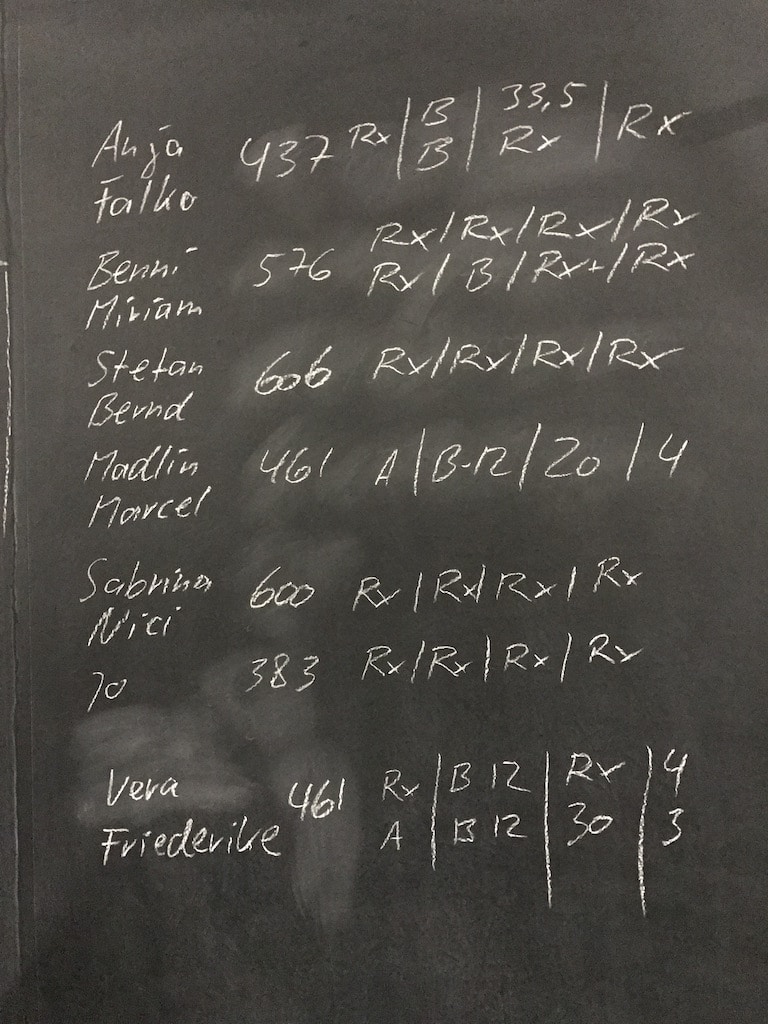 Anja 437 Rx | B | 33,5 | Rx
Falko B Rx
Benni 576 Rx / Rx / Rx / Rx
Miriam Rx / B / Rx+ / Rx
Stefan 606 Rx / Rx / Rx / Rx
Bernd
Madlin 461 A | B-12 | 20 | 4
Marcel
Sabrina 600 Rx | Rx | Rx | Rx
Nici
Jo 383 Rx / Rx | Rx / Rx
Vera 461 Rx | B 12 | Rx | 4
Friederike A | B 12 | 30 | 3